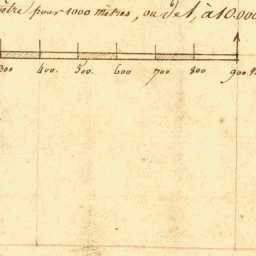 mètre pour 1000 mètres, ou de 1, à 10.000
300 400. 500. 600 700 800 900.